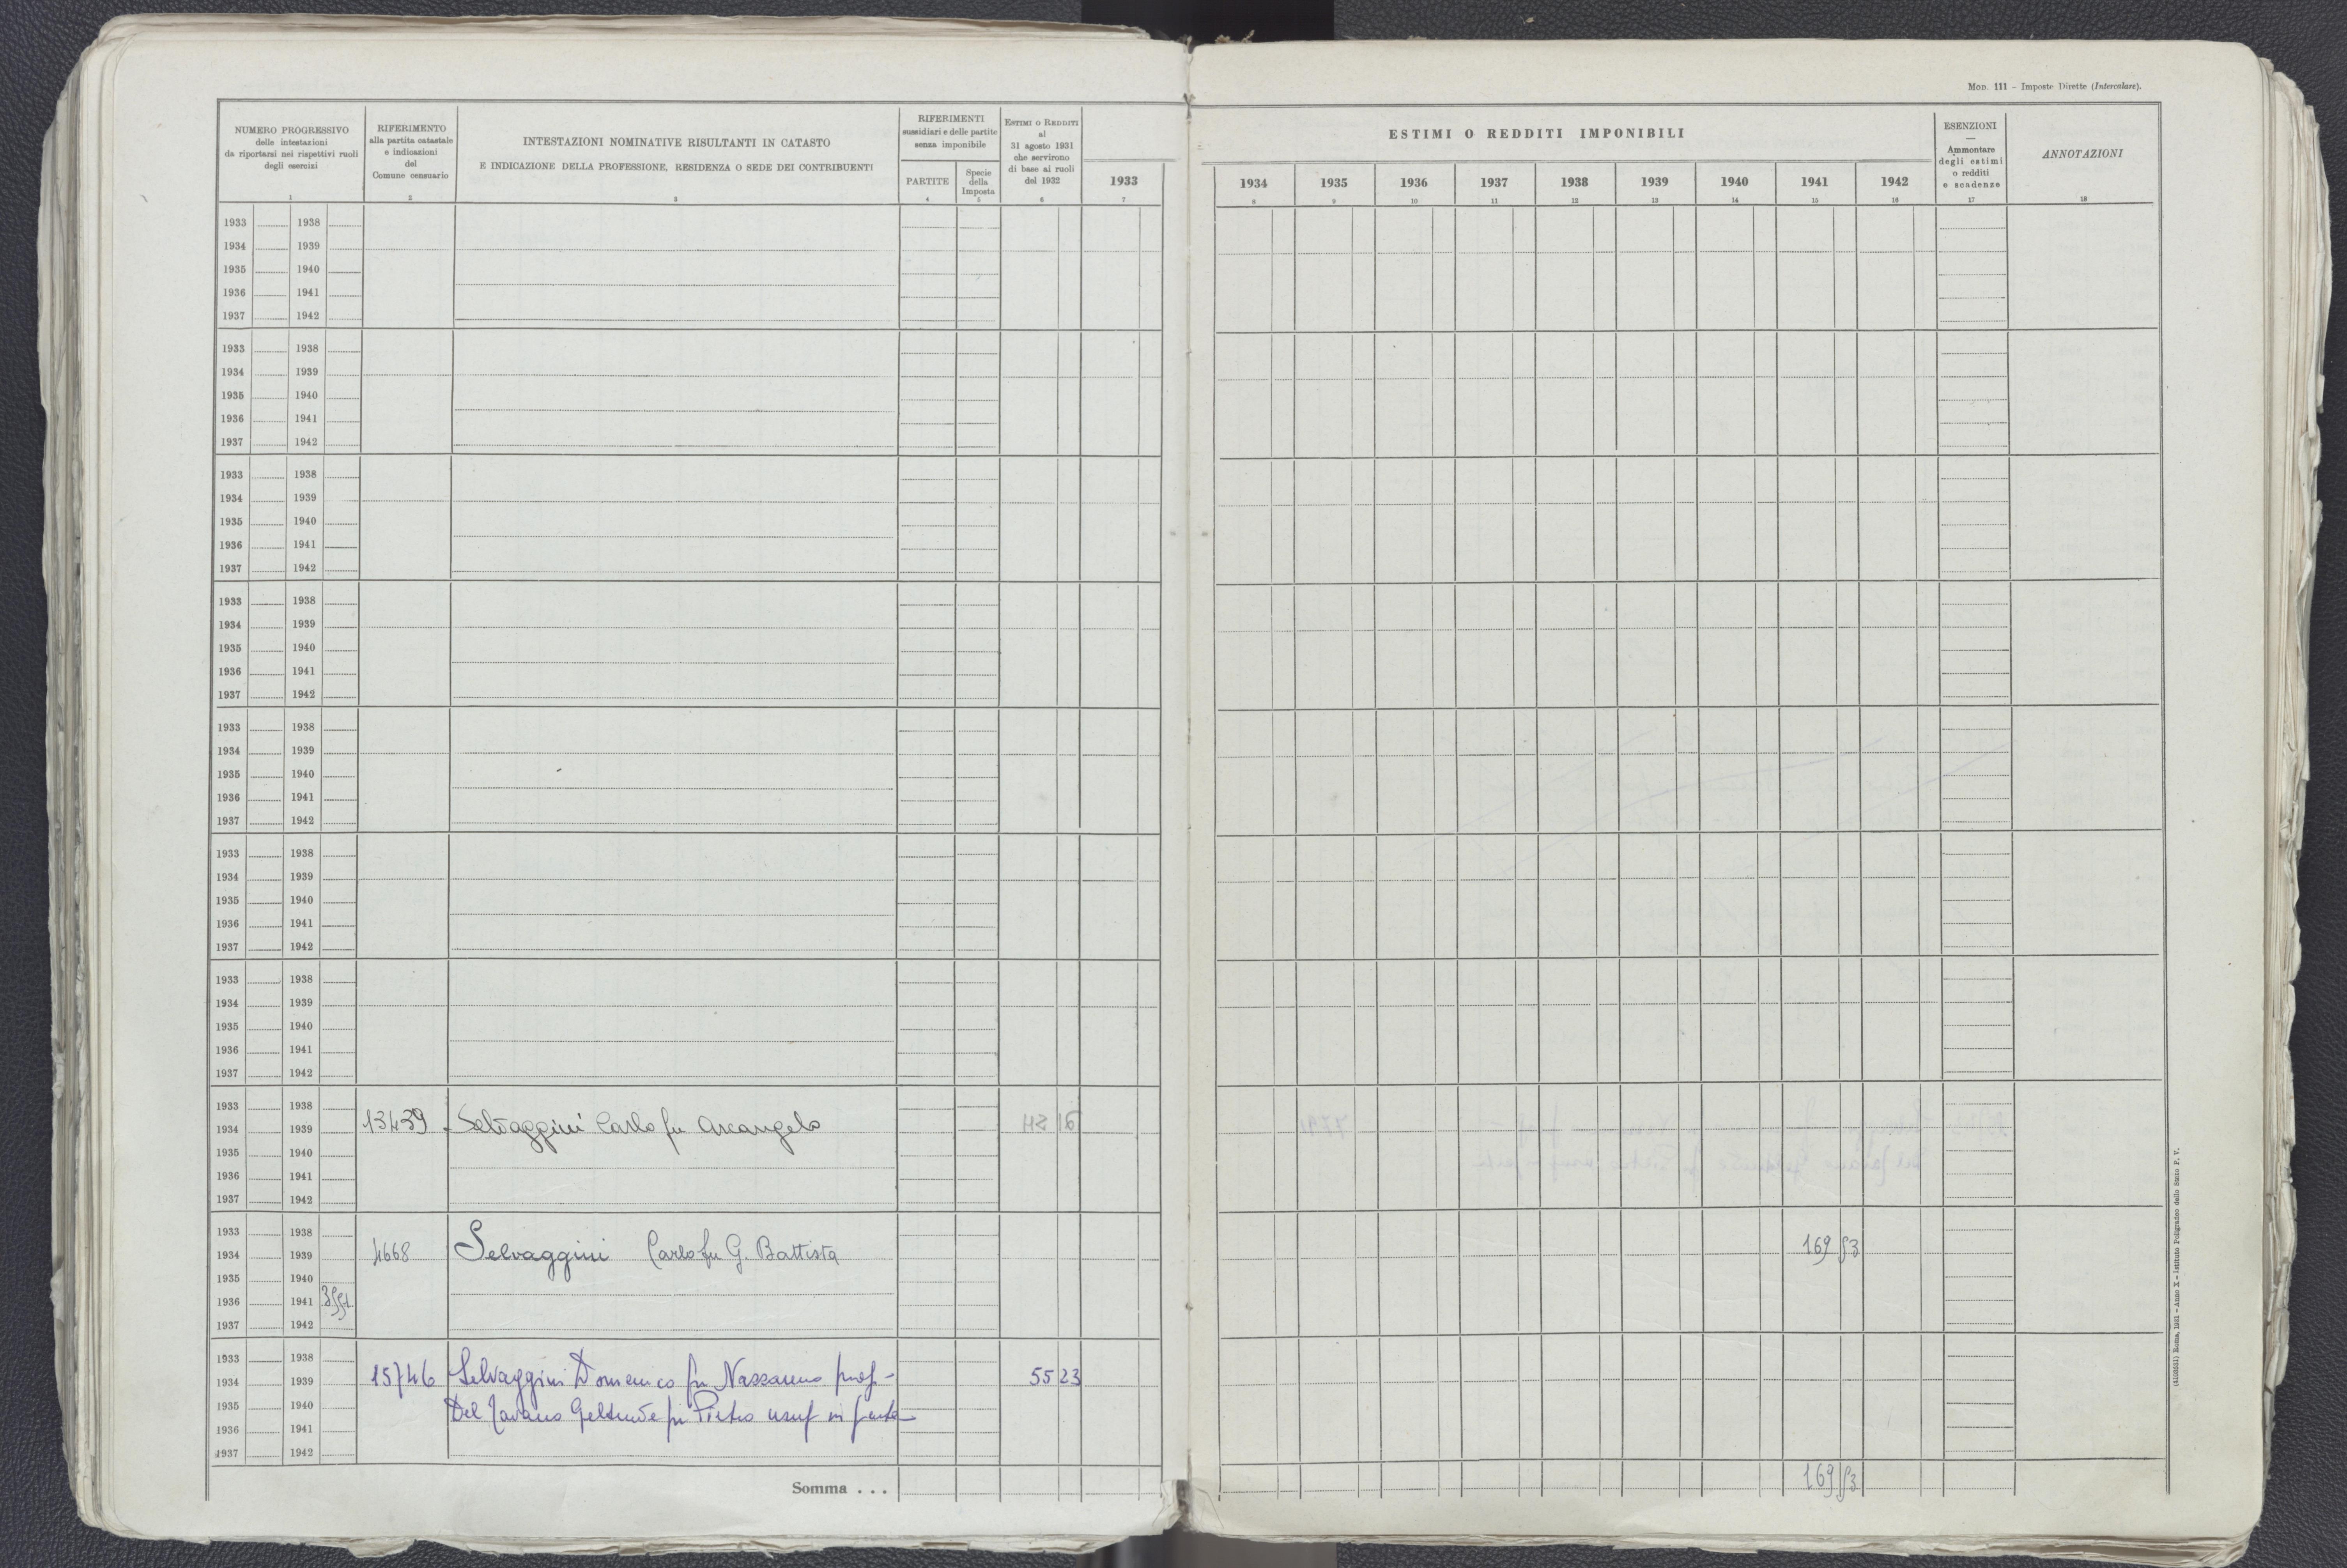 Mod. 111 – Imposte Dirette (Intercalare).
NUMERO PROGRESSIVO
delle intestazioni
da riportarsi nei rispettivi ruoli
degli esercizi
1
RIFERIMENTO
alla partita catastale
e indicazioni
del
Comune censuario
2
INTESTAZIONI NOMINATIVE RISULTANTI IN CATASTO
E INDICAZIONE DELLA PROFESSIONE, RESIDENZA O SEDE DEI CONTRIBUENTI
3
RIFERIMENTI
sussidiari e delle partite
senza imponibile
PARTITE
4
Specie
della
Imposta
5
ESTIMI O REDDITI
al
31 agosto 1931
che servirono
di base ai ruoli
del 1932
6
1933
7
ESTIMI O REDDITI IMPONIBILI
1934 1935 1936 1937 1938 1939 1940 1941 1942
8 9 10 11 12 13 14 15 16
ESENZIONI
—
Ammontare
degli estimi
o redditi
e scadenze
17
ANNOTAZIONI
18
1933 1938
1934 1939
1935 1940
1936 1941
1937 1942
1933 1938
1934 1939
1935 1940
1936 1941
1937 1942
1933 1938
1934 1939
1935 1940
1936 1941
1937 1942
1933 1938
1934 1939
1935 1940
1936 1941
1937 1942
1933 1938
1934 1939
1935 1940
1936 1941
1937 1942
1933 1938
1934 1939
1935 1940
1936 1941
1937 1942
1933 1938
1934 1939
1935 1940
1936 1941
1937 1942
1933 1938
1934 1939 13439 Selvaggini Carlo fu Arcangelo
1935 1940
1936 1941
1937 1942
1933 1938
1934 1939 4668 Selvaggini Carlo fu G. Battista 169 53
1935 1940
1936 1941
1937 1942
1933 1938
1934 1939 15746 Selvaggini Domenico fu Nazzareno prop-
1935 1940 Del fu Pietro usuf in parte
55 23
1936 1941
1937 1942
Somma . . . 169 53
(4103531) Roma, 1931 – Anno X – Istituto Poligrafico dello Stato P. V.